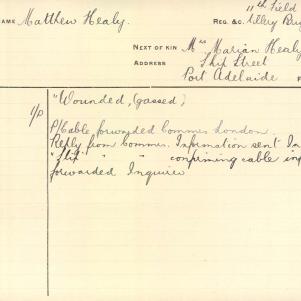 11th Field
NAME Matthew Healy. REG. &C. tillery Brig
NEXT OF KIN Mrs Marian Healy
ADDRESS Ship Street
Port Adelaide
"Wounded, (gassed)
P/Cable forwarded Commrs London.
Reply from Commrs. Information sent In
"Slip" " " confirming cable inf
forwarded Inquirer